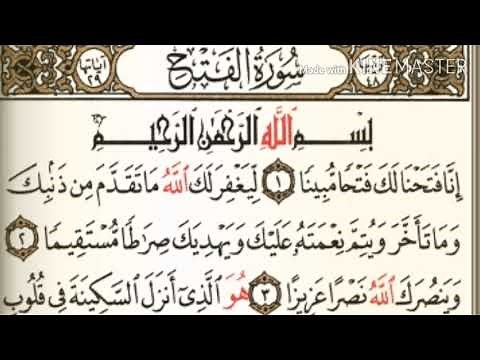 آياتها ٢٩
سُورَةُ الْفَتْحِ
٤٨
Made with KINEMASTER
بِسْمِ ٱللَّهِ ٱلرَّحْمَٰنِ ٱلرَّحِيمِ
إِنَّا فَتَحْنَا لَكَ فَتْحًا مُّبِينًا ١ لِّيَغْفِرَ لَكَ ٱللَّهُ مَا تَقَدَّمَ مِن ذَنۢبِكَ
وَمَا تَأَخَّرَ وَيُتِمَّ نِعْمَتَهُۥ عَلَيْكَ وَيَهْدِيَكَ صِرَٰطًا مُّسْتَقِيمًا ٢
وَيَنصُرَكَ ٱللَّهُ نَصْرًا عَزِيزًا ٣ هُوَ ٱلَّذِىٓ أَنزَلَ ٱلسَّكِينَةَ فِى قُلُوبِ